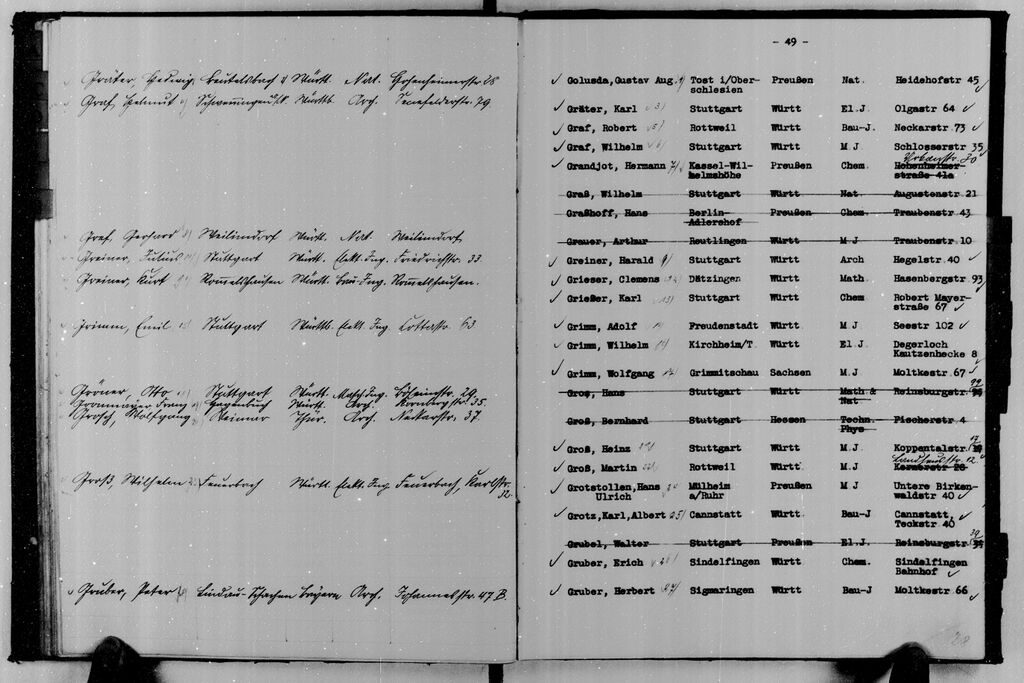 Gräter, Hedwig Beutelsbach Württ. Nat. Hohenheimerstr 28
Graf, Helmut Schwenningen Württb. Arch. Senefelderstr. 79
Graf, Gerhard Weilimdorf Württ. Nat. Weilimdorf
Greiner, Julius Stuttgart Württ. Elekt. Ing. Friedrichstr. 33
Greiner, Kurt Rommelshausen Württ. Bau-Ing. Rommelshausen.
Grimm, Emil Stuttgart Württb. Elekt. Ing Cottastr. 63
Gröner, Otto Stuttgart Württ. Masch Ing. 29.
Franz Württ. Arch. Hornbergstr. 35.
Grosch, Wolfgang Weimar Thür. Arch. Neckarstr. 37.
Groß, Wilhelm Feuerbach Württ. Elekt. Ing Feuerbach, Karlstr.
Gruber, Peter Lindau-Schachen Bayern Arch. Johannesstr. 47 B.
- 49 -
Golusda, Gustav Aug. Tost i/Ober- Preußen Nat. Heidehofstr 45
schlesien
Gräter, Karl 3) Stuttgart Württ El.J Olgastr 64
Graf, Robert 5) Rottweil Württ Bau-J. Neckarstr 73
Graf, Wilhelm 6) Stuttgart Württ M J Schlosserstr 35
Urbanstr. 30
Grandjot, Hermann 7) Kassel-Wil- Preußen Chem. Hohenheimer-
helmshöhe straße 41a
Graß, Wilhelm Stuttgart Württ Nat Augustenstr 21
Graßhoff, Hans Berlin- Preußen Chem. Traubenstr 43
Adlershof
Grauer, Arthur Reutlingen Württ M J Traubenstr 10
Greiner, Harald 9) Stuttgart Württ Arch Hegelstr 40
Grieser, Clemens 12) Dätzingen Württ Math. Hasenbergstr 93
Grießer, Karl 13) Stuttgart Württ Chem Robert Mayer-
straße 67
Grimm, Adolf Freudenstadt Württ M J Seestr 102
Grimm, Wilhelm Kirchheim/T Württ El.J Degerloch
Kautzenhecke 8
Grimm, Wolfgang Grimmitschau Sachsen M J Moltkestr 67
Groß, Hans Stuttgart Württ Math & Reinsburgstr
Nat
Groß, Bernhard Stuttgart Hessen Techn. Fischerstr 4
Phys
Groß, Heinz Stuttgart Württ M.J Koppentalstr 17
Landhausstr. 12
Groß, Martin Rottweil Württ M J Kernerstr 28
Grotstollen, Hans Mülheim Preußen M J Untere Birken-
Ulrich a/Ruhr waldstr 40
Grotz, Karl, Albert 25) Cannstatt Württ. Bau-J Cannstatt,
Teckstr 40
39
Grubel, Walter Stuttgart Preußen El.J. Reinsburgstr
Gruber, Erich Sindelfingen Württ Chem. Sindelfingen
Bahnhof
Gruber, Herbert 27) Sigmaringen Württ Bau-J Moltkestr 66
28